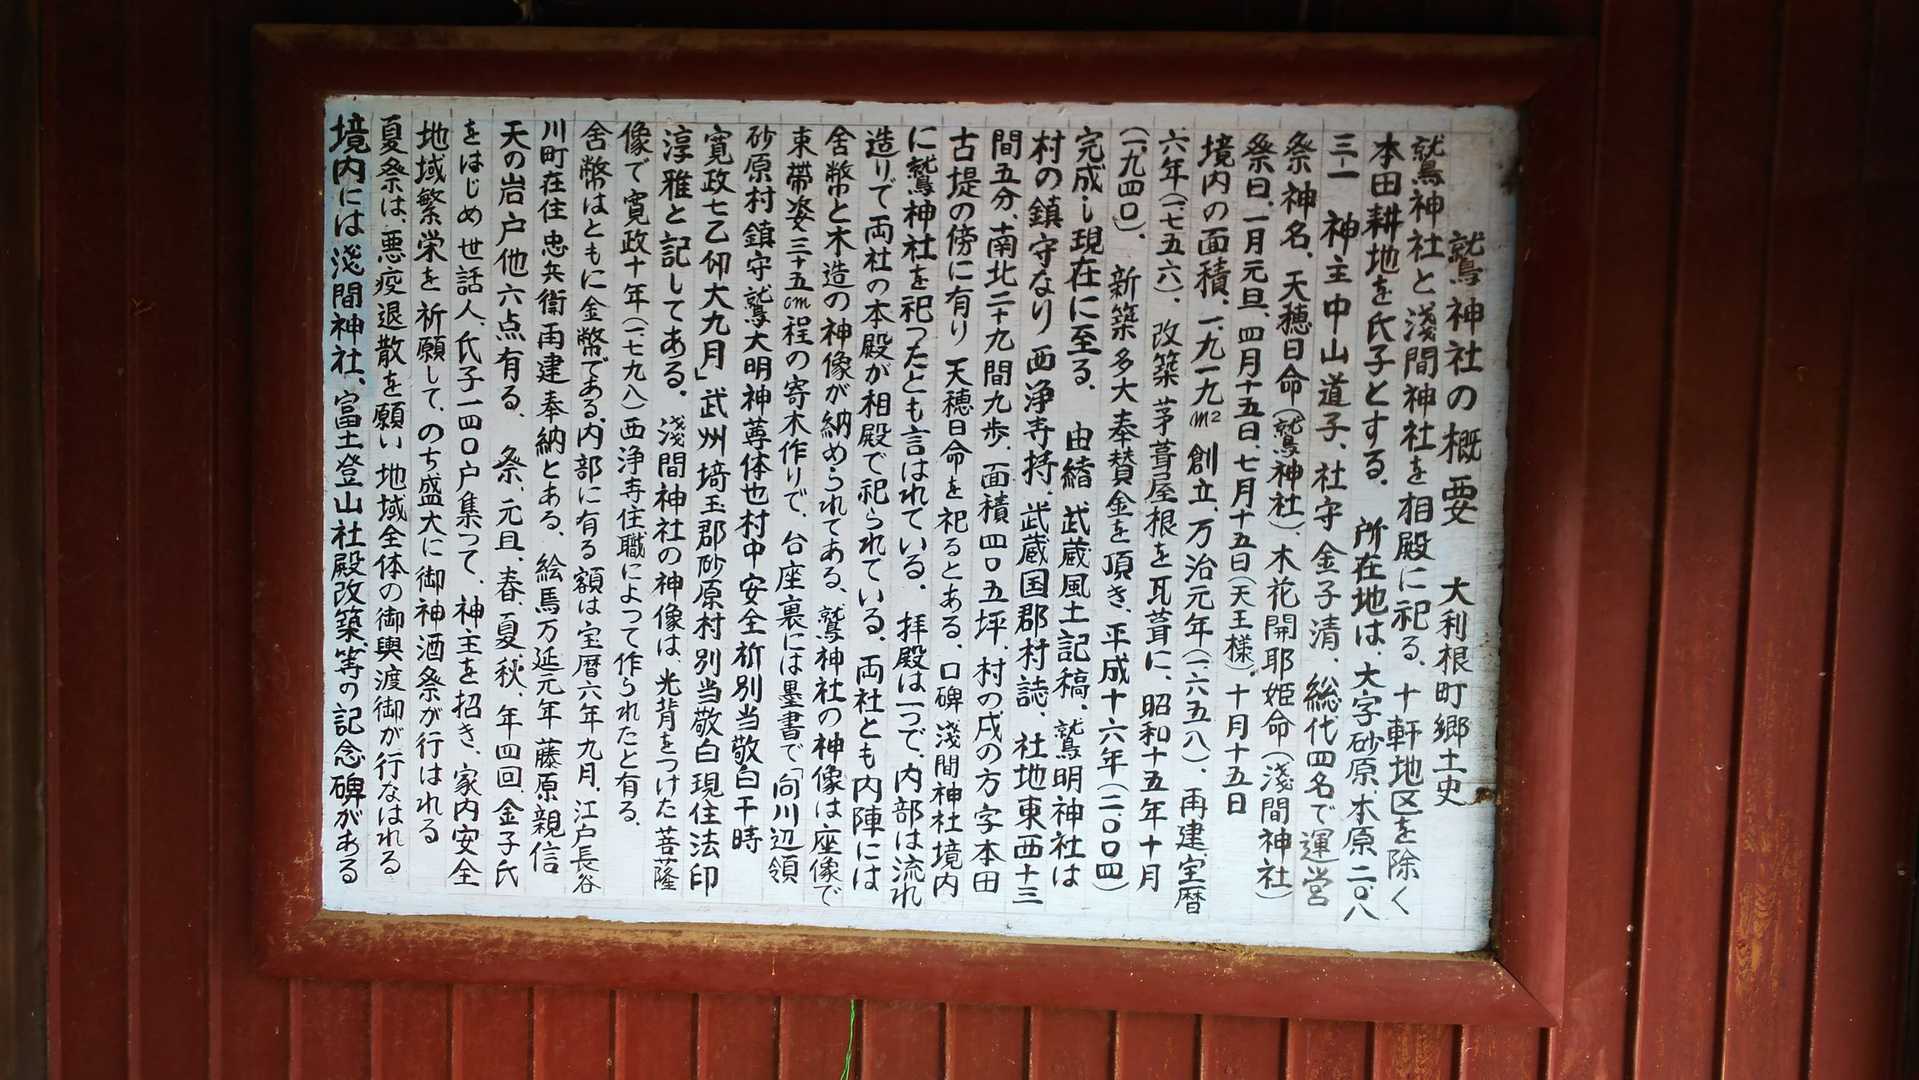 鷲神社の概要　大利根町郷土史
鷲神社と淺間神社を相殿に祀る、十軒地区を除く
本田耕地を氏子とする。　所在地は、大字砂原、本原二〇八
三一　神主中山道子、社守金子清、総代四名で運営
祭神名、天穂日命（鷲神社）、木花開耶姫命（淺間神社）
祭日、一月元旦、四月十五日、七月十五日（天王様）、十月十五日
境内の面積、一、九一九m² 創立、万治元年（一、六五八）、再建、宝暦
六年（一、七五六）、改築 茅葺屋根を瓦葺に、昭和十五年十月
（一、九四〇）、　新築多大奉賛金を頂き、平成十六年（二、〇〇四）
完成し現在に至る。　由緒　武蔵風土記稿、鷲明神社は
村の鎮守なり　西浄寺持、武蔵国郡村誌、社地東西十三
間五分、南北二十九間九歩、面積四〇五坪、村の戌の方字本田
古堤の傍に有り　天穂日命を祀るとある、口碑　淺間神社境内
に鷲神社を祀ったとも言はれている。　拝殿は一つで、内部は流れ
造りで両社の本殿が相殿で祀られている、両社とも内陣には
舎幣と木造の神像が納められてある、鷲神社の神像は座像で
束帯姿三十五cm程の寄木作りで、台座裏には墨書で「向川辺領
砂原村鎮守鷲大明神蓴体也村中安全祈別当敬白干時
寛政七乙卯大九月」武州埼玉郡砂原村別当敬白現住法印
淳雅と記してある。　淺間神社の神像は、光背をつけた菩薩
像で寛政十年（一七九八）西浄寺住職によって作られたと有る。
舎幣はともに金幣である、内部に有る額は宝暦六年九月、江戸長谷
川町在住忠兵衛再建奉納とある、絵馬万延元年　藤原親信
天の岩戸他六点有る、　祭、元旦、春、夏、秋、年四回、金子氏
をはじめ世話人、氏子一四〇戸集って、神主を招き、家内安全
地域繁栄を祈願して、のち盛大に御神酒祭が行はれる
夏祭は、悪疫退散を願い地域全体の御輿渡御が行なはれる
境内には淺間神社、富士登山社殿改築、等の記念碑がある